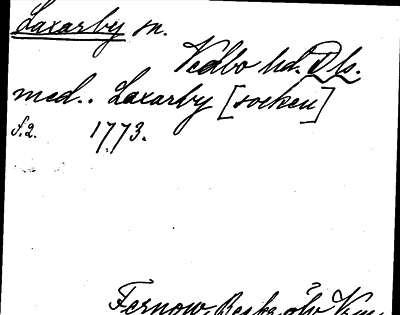 Laxarby sn.
Vedbo hd. Dls.
med.. Laxarby [socken]
s.2. 1773.
Fernow, Beskr. öfv. Värm